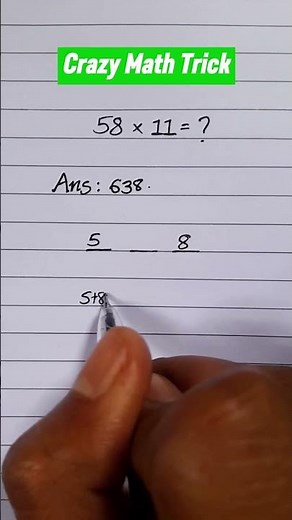 Crazy Math Trick
58 × 11 = ?
Ans: 638.
5 _ 8
5+8